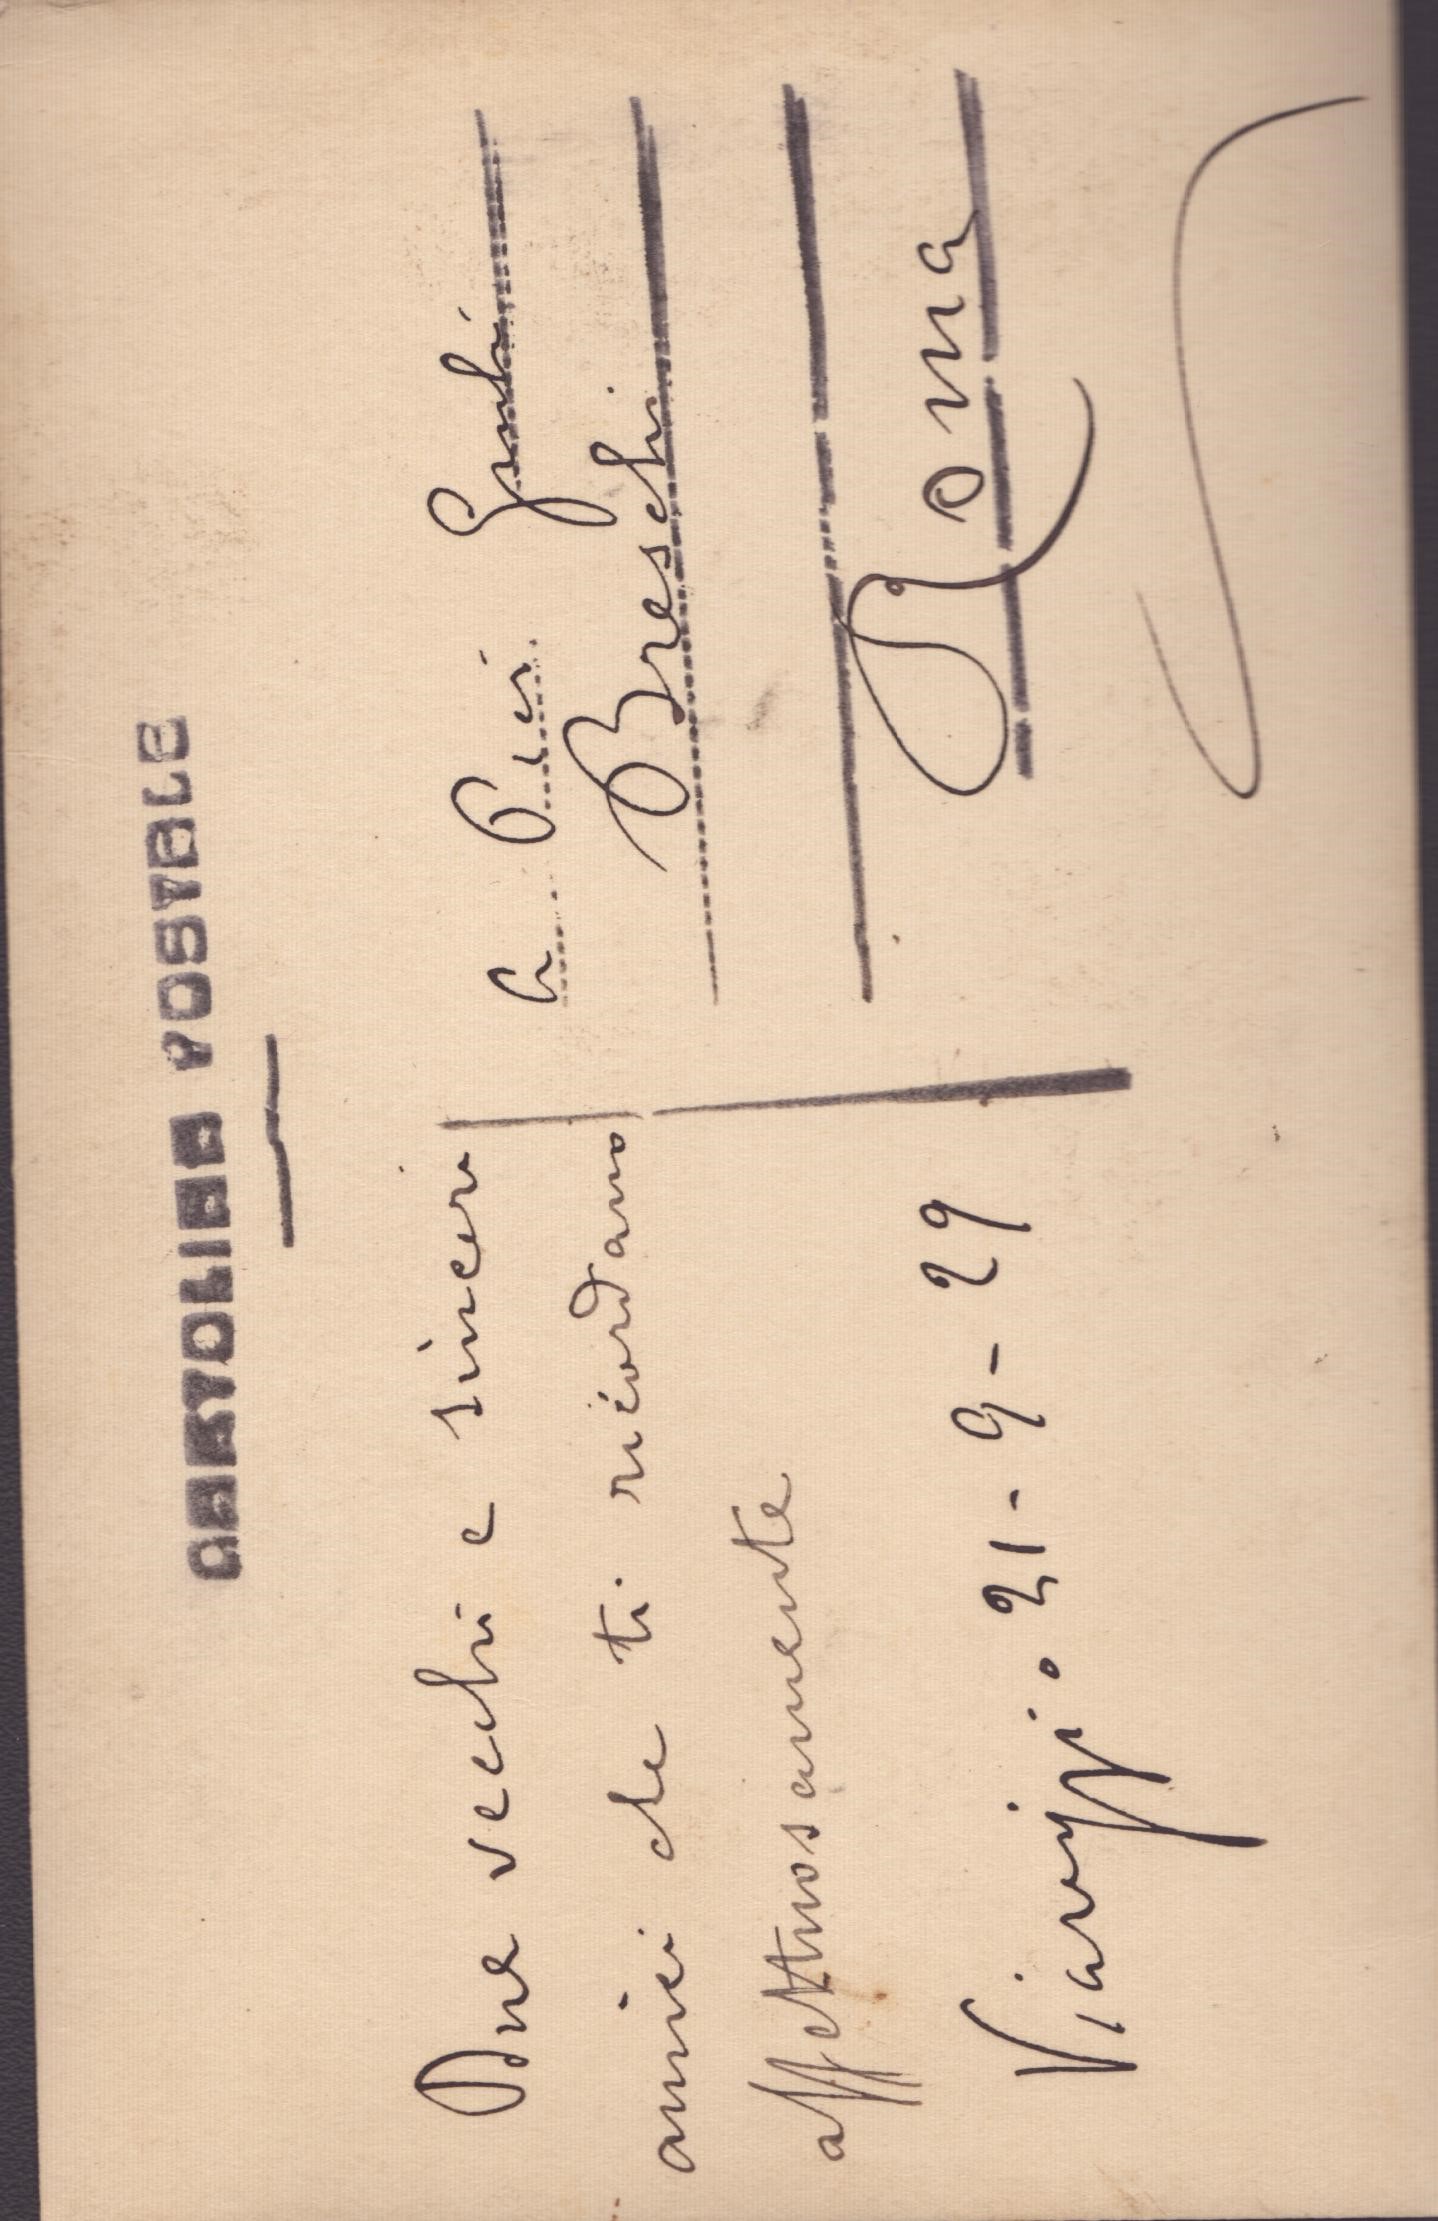 CARTOLINA POSTALE
Due vecchi e sinceri
amici che ti ricordano
affettuosamente
Viareggio 21-9-29
Breschi
Roma